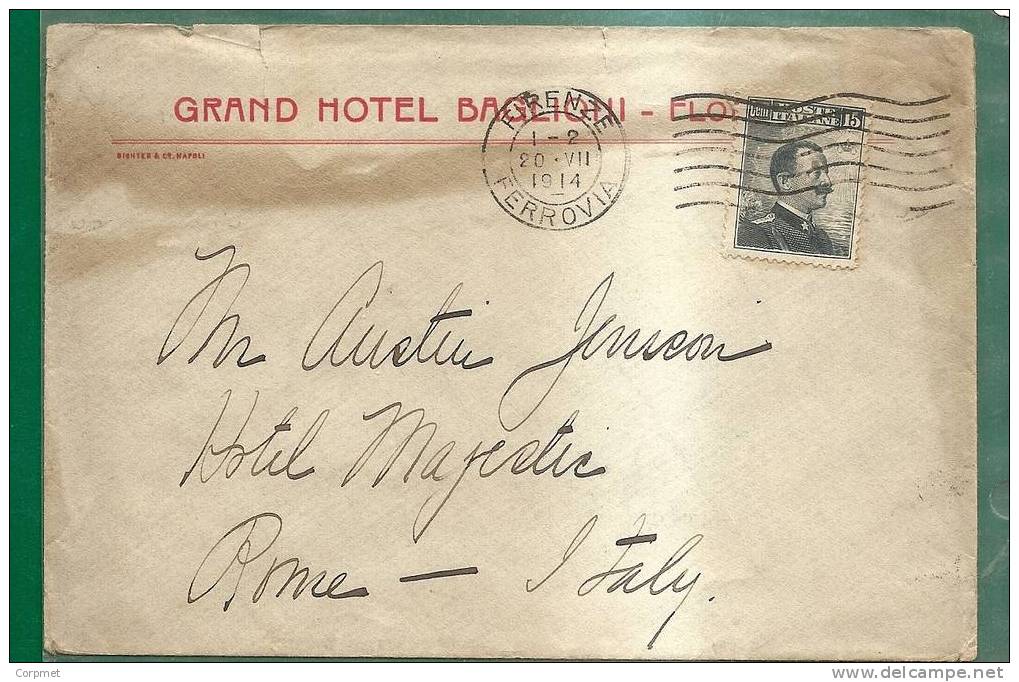 GRAND HOTEL BAGLIONI - FLO
RICHTER & Co. NAPOLI
FIRENZE
1-2
20·VII
1914
FERROVIA
CENT POSTE 15
ITALIANE
Mr Austin
Hotel Majestic
Rome — Italy.
Corpmet
www.delcampe.net